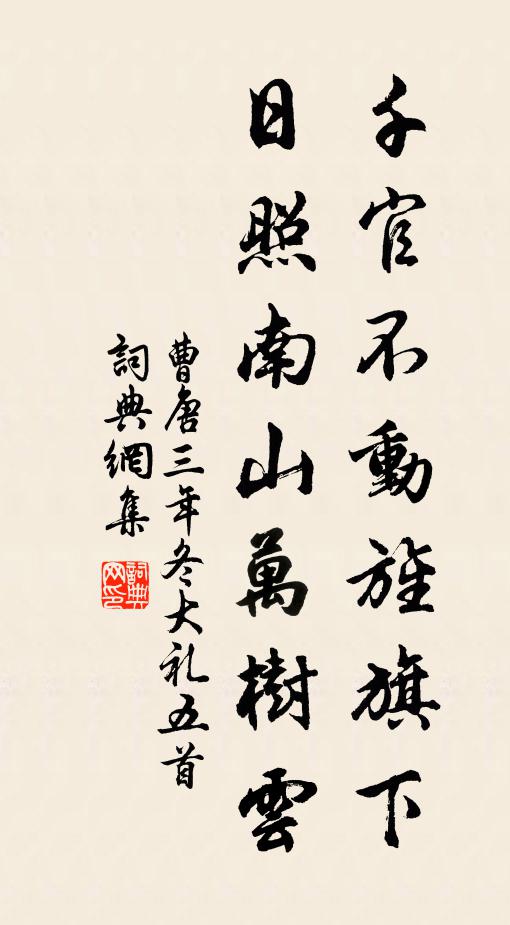 千官不動旌旗下
日照南山萬樹雲
曹唐三年冬大礼五首
詞典網集
詞典网印